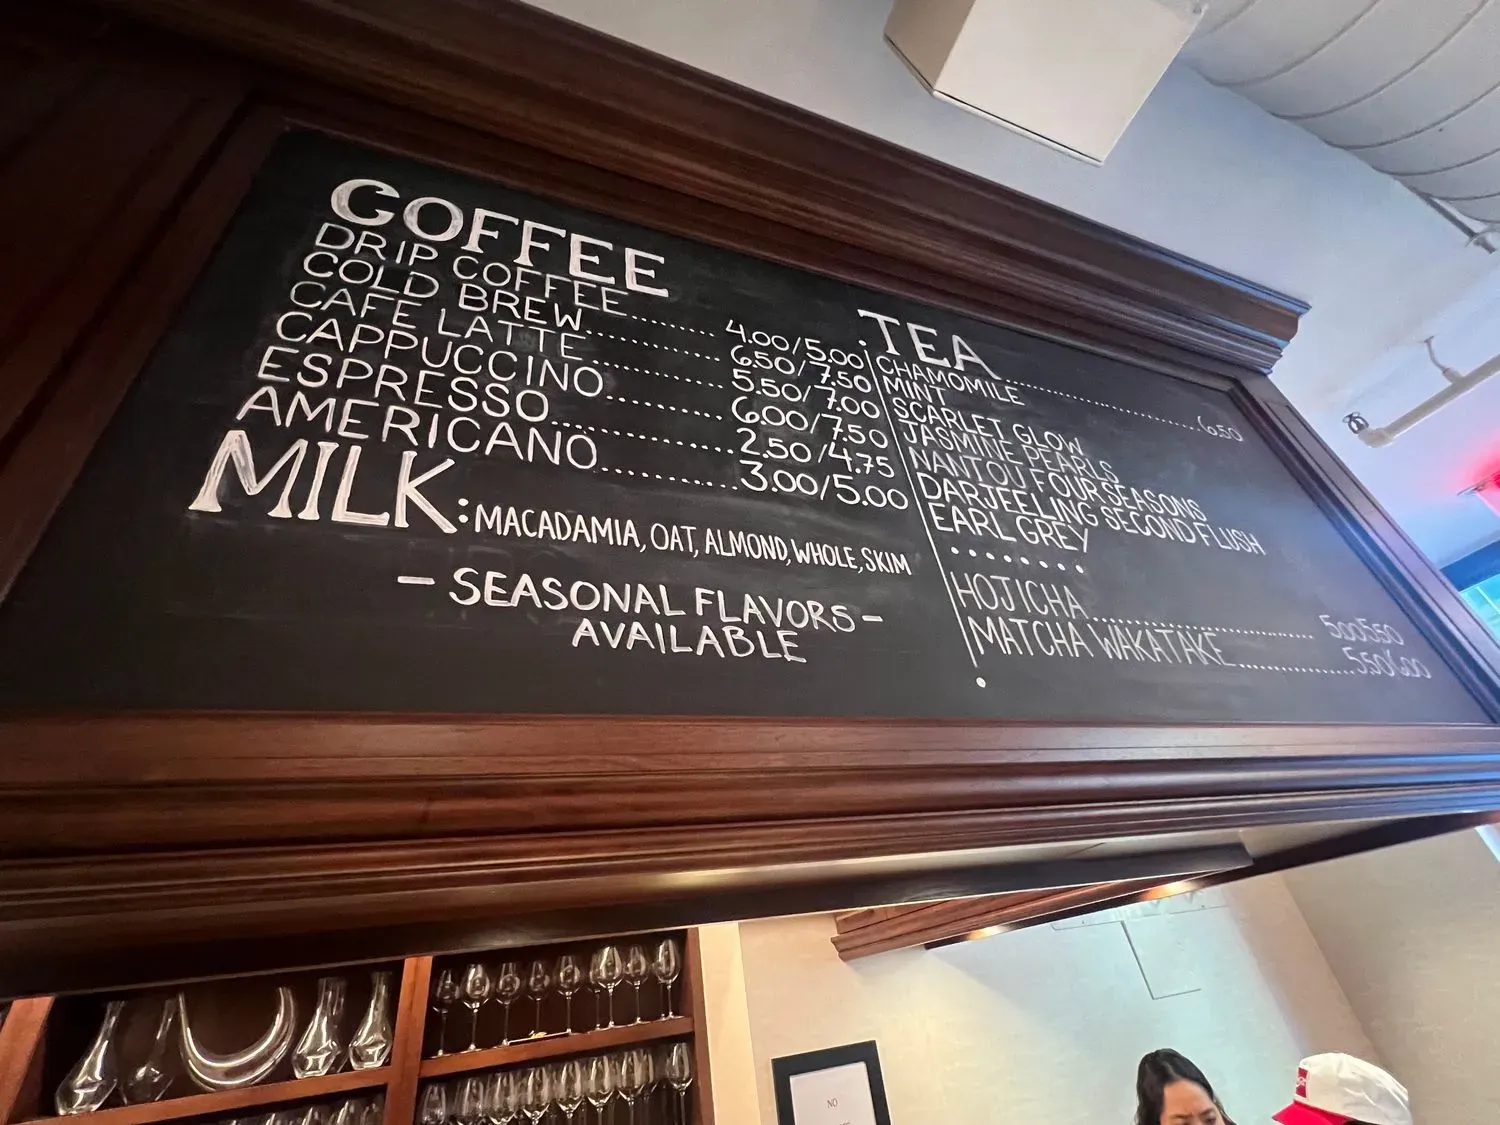 COFFEE
DRIP COFFEE......... 4.00/5.00
COLD BREW............... 6.50/7.50
CAFE LATTE.............. 5.50/7.00
CAPPUCCINO............ 6.00/7.50
ESPRESSO.................. 2.50/4.75
AMERICANO.............. 3.00/5.00
MILK: MACADAMIA, OAT, ALMOND, WHOLE, SKIM
- SEASONAL FLAVORS -
AVAILABLE
TEA
CHAMOMILE.............................. 6.50
MINT
SCARLET GLOW
JASMINE PEARLS
NANTOU FOUR SEASONS
DARJEELING SECOND FLUSH
EARL GREY
........
HOJICHA.............................. 5.00/5.50
MATCHA WAKATAKE................ 5.50/6.00
NO